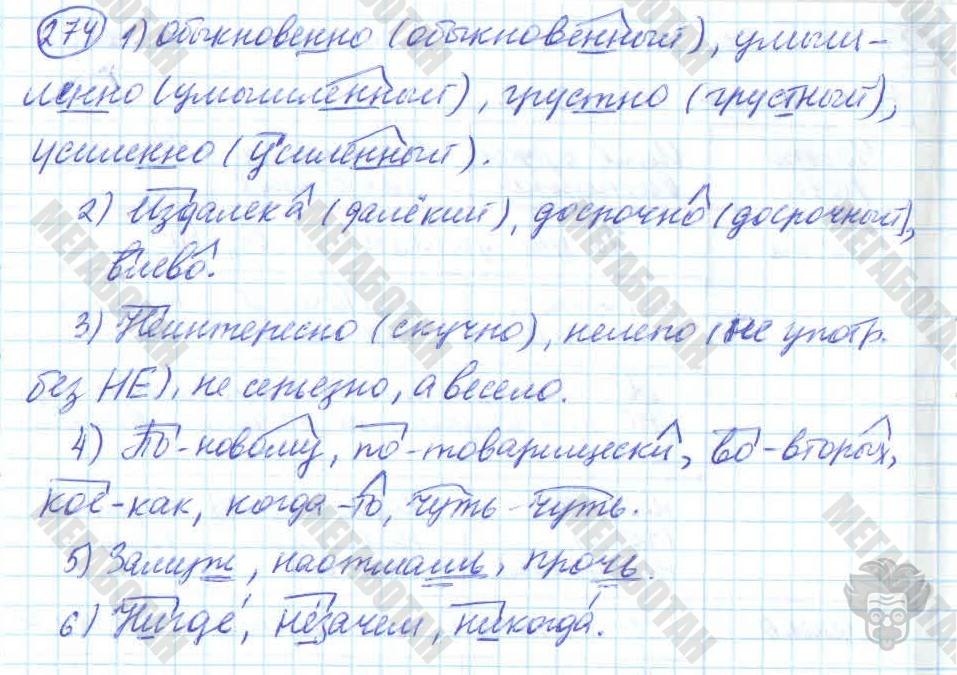 274 1) Обыкновенно (обыкновенный), умыш-
ленно (умышленный), грустно (грустный),
усиленно (усиленный).
2) Издалека (далёкий), досрочно (досрочный),
влево.
3) Неинтересно (скучно), нелепо (не употр.
без НЕ), не серьезно, а весело.
4) По-новому, по-товарищески, во-вторых,
кое-как, когда-то, чуть-чуть.
5) Замуж, наотмашь, прочь.
6) Нигде, незачем, никогда.
МЕГАБОТАН